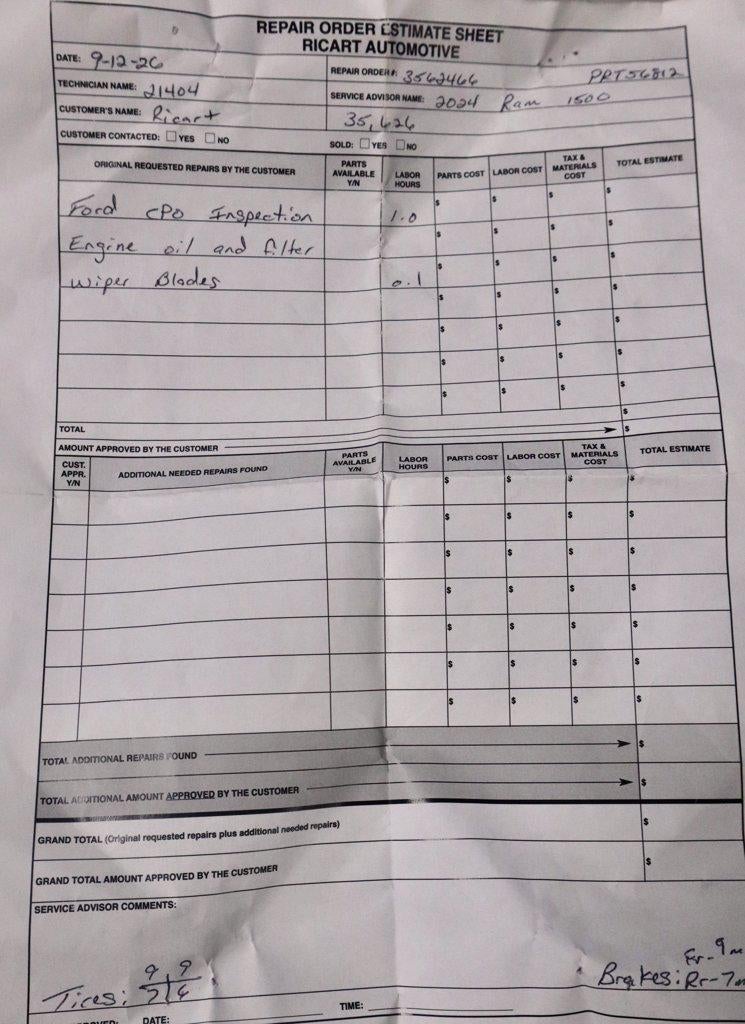 REPAIR ORDER ESTIMATE SHEET
RICART AUTOMOTIVE
DATE: 9-12-26
REPAIR ORDER#: 3562466 PRT56812
TECHNICIAN NAME: 21404
SERVICE ADVISOR NAME: 2024 Ram 1500
CUSTOMER'S NAME: Ricart
35,626
CUSTOMER CONTACTED: YES NO
SOLD: YES NO
ORIGINAL REQUESTED REPAIRS BY THE CUSTOMER PARTS AVAILABLE Y/N LABOR HOURS PARTS COST LABOR COST TAX & MATERIALS COST TOTAL ESTIMATE
Ford CPO Inspection 1.0 $ $ $ $
Engine oil and filter $ $ $ $
Wiper Blades 0.1 $ $ $ $
$ $ $ $
$ $ $ $
$ $ $ $
$ $ $ $
TOTAL $
AMOUNT APPROVED BY THE CUSTOMER $
CUST. APPR. Y/N ADDITIONAL NEEDED REPAIRS FOUND PARTS AVAILABLE Y/N LABOR HOURS PARTS COST LABOR COST TAX & MATERIALS COST TOTAL ESTIMATE
$ $ $ $
$ $ $ $
$ $ $ $
$ $ $ $
$ $ $ $
$ $ $ $
$ $ $ $
TOTAL ADDITIONAL REPAIRS FOUND $
TOTAL ADDITIONAL AMOUNT APPROVED BY THE CUSTOMER $
GRAND TOTAL (Original requested repairs plus additional needed repairs) $
GRAND TOTAL AMOUNT APPROVED BY THE CUSTOMER $
SERVICE ADVISOR COMMENTS:
Tires: 9 9
7 6
Brakes: Fr-9m
Rr-7m
DATE: TIME: